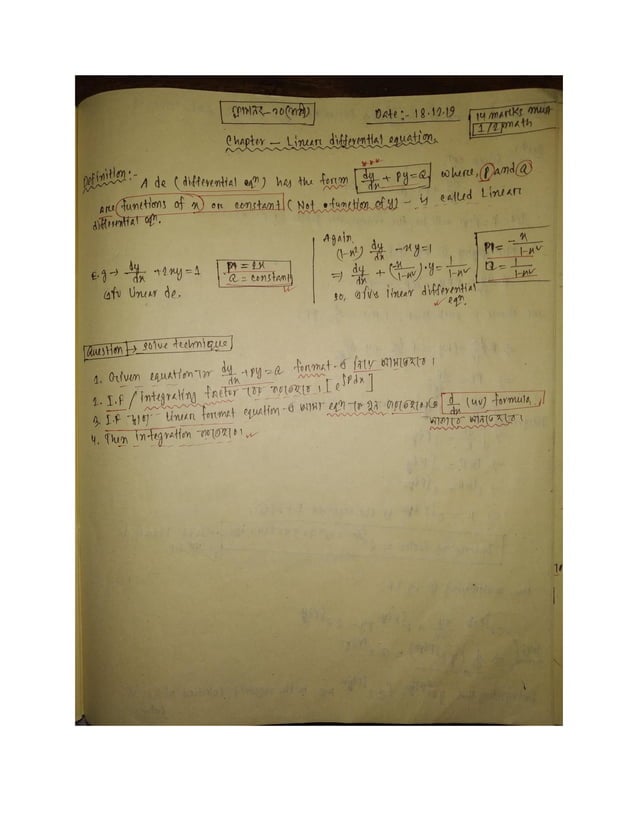 Date:- 18.12.19
14 marks must
1/2 math
Chapter — Linear differential equation.
Definition:- A de (differential eqn) has the form dy/dx + Py = Q, where, P and Q
are functions of x or constant (Not function of y) — is called Linear
differential eqn.
E.g → dy/dx + 2xy = 1
P = 2x
Q = constant
linear de.
Again
(1-x²) dy/dx - xy = 1
⇒ dy/dx + (-x/1-x²).y = 1/1-x²
so, linear differential
eqn.
P = - x/1-x²
Q = 1/1-x²
Question → solve technique
1. Given equation কে dy/dx + Py = Q format এ নিয়ে আসতে হবে।
2. I.F / integrating factor বের করতে হবে। [e^∫Pdx]
3. I.F দ্বারা linear format equation এ eqn কে গুন করতে হবে। d/dx (uv) formula
4. Then integration করতে হবে।